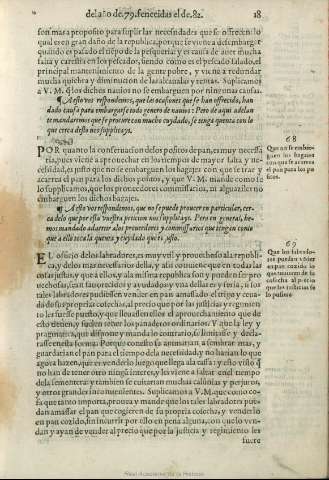 del año de.79.fenecidas el de.82. 18
son mas a proposito para suplir las necesidades que se ofrecen: lo
qual es en gran daño de la republica, porque se viene a desembarg
quando es pasado el tiempo de la pesqueria: y es causa de auer mucha
falta y carestia en los pescados, siendo como es el pescado salado, el
principal mantenimiento de la gente pobre, y viene a redundar
mucha quiebra y diminucion de las alcaualas y rentas. Suplicamos
a V. M. q̃ los dichos nauios no se embarguen por ningunas causas.
¶ A esto vos respondemos, que las ocasiones que se han offrecido, han
dado causa para embargar se todo genero de nauios: Pero de aqui adelan
te mandaremos que se procure con mucho cuydado, se tenga cuenta con lo
que cerca desto nos supplicays.
68
Que no se embar
guen los bagajes
con que se acarrea
el pan para los po
sitos.
POR quanto la conseruacion delos positos de pan, es muy necessa
ria, pues viene a aprouechar en los tiempos de mayor falta y ne-
cesidad, es justo que no se embarguen los bagajes con que se traè y
acarrea el pan para los dichos positos, y que V. M. mande como se
lo suplicamos, que los proueedores comissarios, ni alguaziles no
embarguen los dichos bagajes.
¶ A esto vos respondemos, que no se puede proueer en particular, cer-
ca de lo que por esta vuestra peticion nos supplicays. Pero en general, he-
mos mandado aduertir a los proueedores y commissarios que tengan con
que a ello toca la quenta y cuydado que es justo.
69
Que los labrado-
res puedan vẽder
en pan cozido lo
que tuuieren de su
cosecha al precio
que las justicias se
lo pusieré
EL officio de los labradores, es muy vtil y prouechoso a la republi-
ca, y delos mas necessarios della, y assi conuiene que en todas las
cosas justas, y que a ellos, y a la misma republica son y pueden ser pro
uechosas, sean fauorecidos y ayudados: y vna dellas es y seria, si los
tales labradores pudiessen vender en pan amassado el trigo y ceua-
da de su propria cosecha, al precio que por las justicias, y regimien
to les fuesse puesto, y que lleuassen ellos el aprouechamiento que de
esto tienen, y suelen tener los panaderos ordinarios. Y que la ley y
pragmatica, que dispone y manda lo contrario, se limitasse y decla-
rasse en esta forma: Porque con esto se animarian, a sembrar mas, y
guardarian el pan para el tiempo de la necesidad, y no harian lo que
agora hazen, que es venderlo luego que llega la casa: y esto visto q̃
no han de tener otro ningũ interes, y les viene a faltar en el tiempo
de la sementera: y tambien se euitarian muchas calunias y perjuros,
y otros grandes inconuenientes. Suplicamos a V. M. que como co-
sa que tanto importa, prouea y mande que los tales labradores pue-
dan amassar el pan que cogieren de su propria cosecha, y venderlo
en pan cozido, sin incurrir por ello en pena alguna, con que lo ven-
dan y ayan de vender al precio que por la justicia y regimiento les
fuere
Real Academia de la Historia